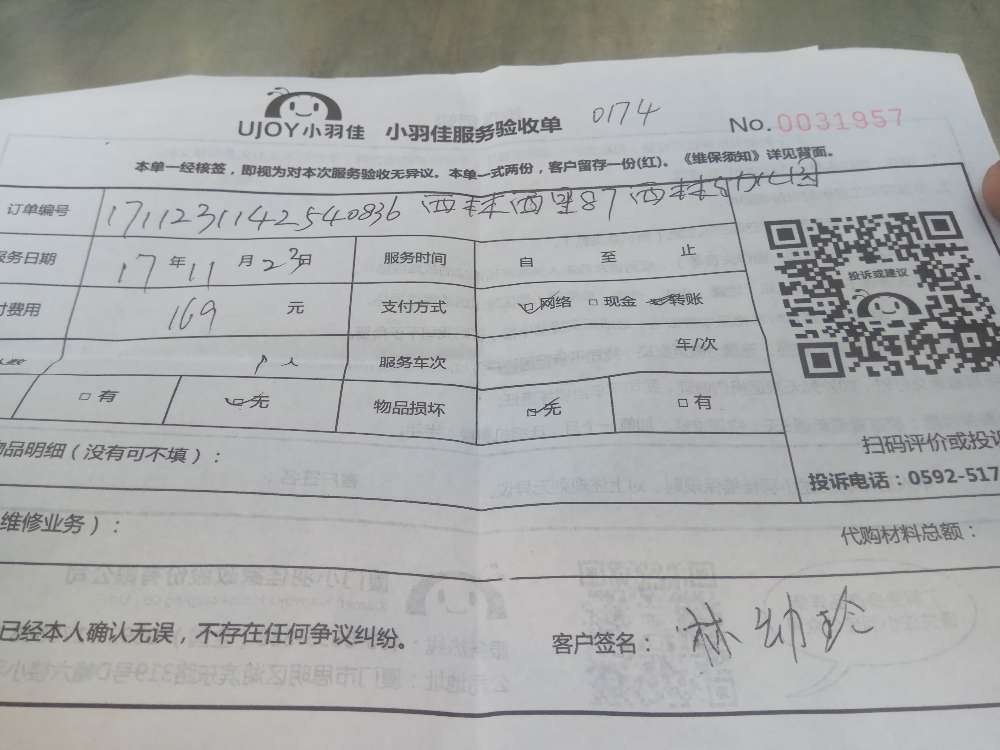 UJOY小羽佳 小羽佳服务验收单 0174 No.0031957
本单一经核签，即视为对本次服务验收无异议。本单一式两份，客户留存一份(红)。《维保须知》详见背面。
订单编号 1711231142540836 西林西里87西林
服务日期 17 年 11 月 23 日 服务时间 自 至 止
付费用 169 元 支付方式 网络 现金 转账
人 服务车次 车/次
有 无 物品损坏 无 有
投诉或建议
物品明细（没有可不填）：
扫码评价或投诉
投诉电话：0592-517
维修业务）：
代购材料总额：
已经本人确认无误，不存在任何争议纠纷。
客户签名：林幼珍